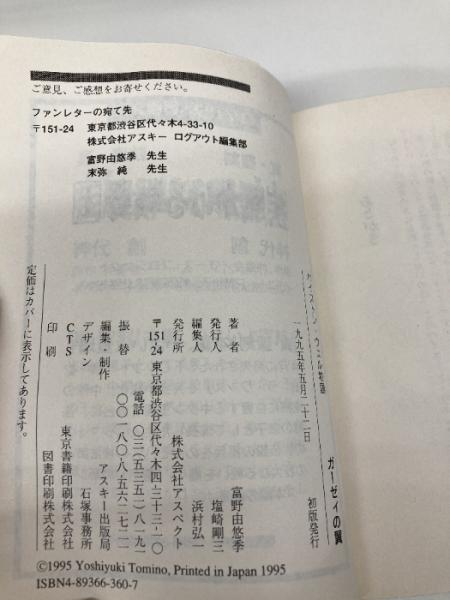 ご意見、ご感想をお寄せください。
ファンレターの宛て先
〒151-24　東京都渋谷区代々木4-33-10
株式会社アスキー　ログアウト編集部
富野由悠季　先生
末弥　純　先生
ガーゼィの翼
一九九五年五月二十二日　初版発行
著者　富野由悠季
発行人　塩崎剛三
編集人　浜村弘一
発行所　株式会社アスペクト
〒151-24　東京都渋谷区代々木四-三十三-一〇
電話　〇三(五三五一)八一九一
振替　〇〇一八〇-八-五六二七一二
編集・制作　アスキー出版局
デザイン　石塚事務所
CTS　東京書籍印刷株式会社
印刷　図書印刷株式会社
定価はカバーに表示してあります。
©1995 Yoshiyuki Tomino, Printed in Japan 1995
ISBN4-89366-360-7